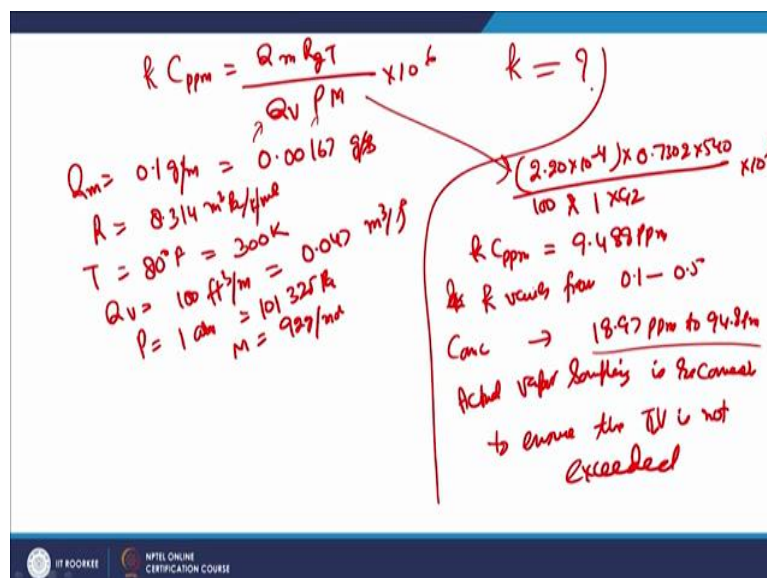 k Cppm = Qm RgT / Qv P M ×10^6
k = ?
Qm = 0.1 g/m = 0.00167 g/s
R = 8.314 m³ Pa/
T = 80°F = 300K
Qv = 100 ft³/m = 0.047 m³/s
P = 1 atm = 101325 Pa
M = 92g/mol
(2.20×10^-4) × 0.7302 × 540 / 100 × 1 × 92 ×10
k Cppm = 9.488 ppm
k varies from 0.1 – 0.5
Conc → 18.97 ppm to 94.8
Actual vapor Sampling is
to ensure the is not
exceeded
IIT ROORKEE
NPTEL ONLINE
CERTIFICATION COURSE